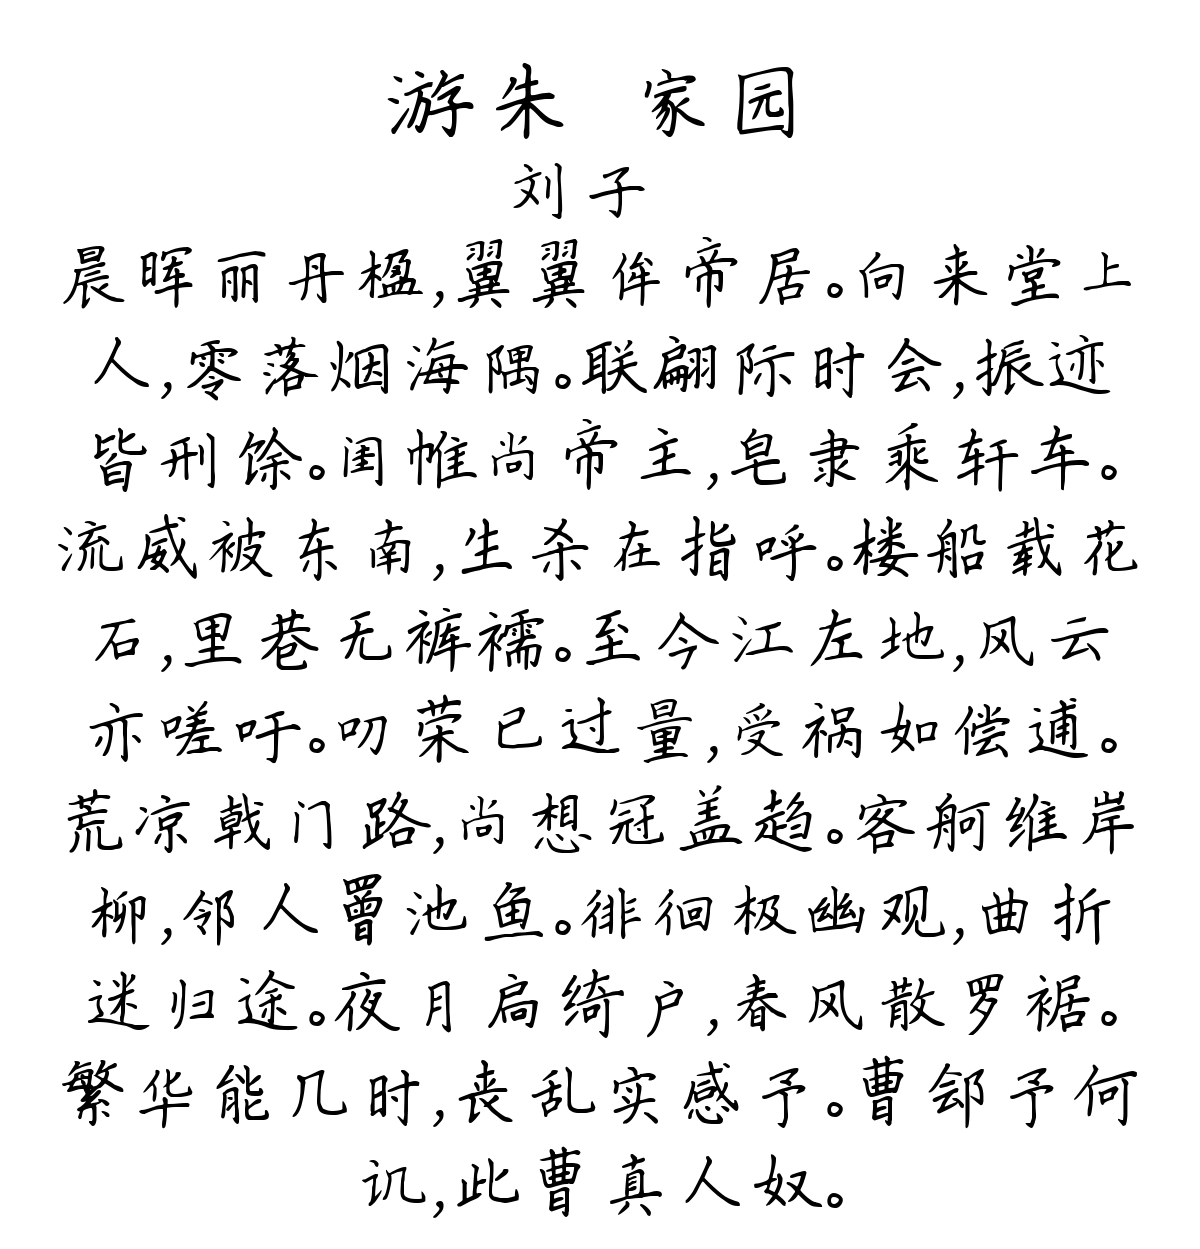 游朱 家园
刘子
晨晖丽丹楹,翼翼侔帝居。向来堂上
人,零落烟海隅。联翩际时会,振迹
皆刑馀。闺帷尚帝主,皂隶乘轩车。
流威被东南,生杀在指呼。楼船载花
石,里巷无裤襦。至今江左地,风云
亦嗟吁。叨荣已过量,受祸如偿逋。
荒凉戟门路,尚想冠盖趋。客舸维岸
柳,邻人罾池鱼。徘徊极幽观,曲折
迷归途。夜月扃绮户,春风散罗裾。
繁华能几时,丧乱实感予。曹郐予何
讥,此曹真人奴。